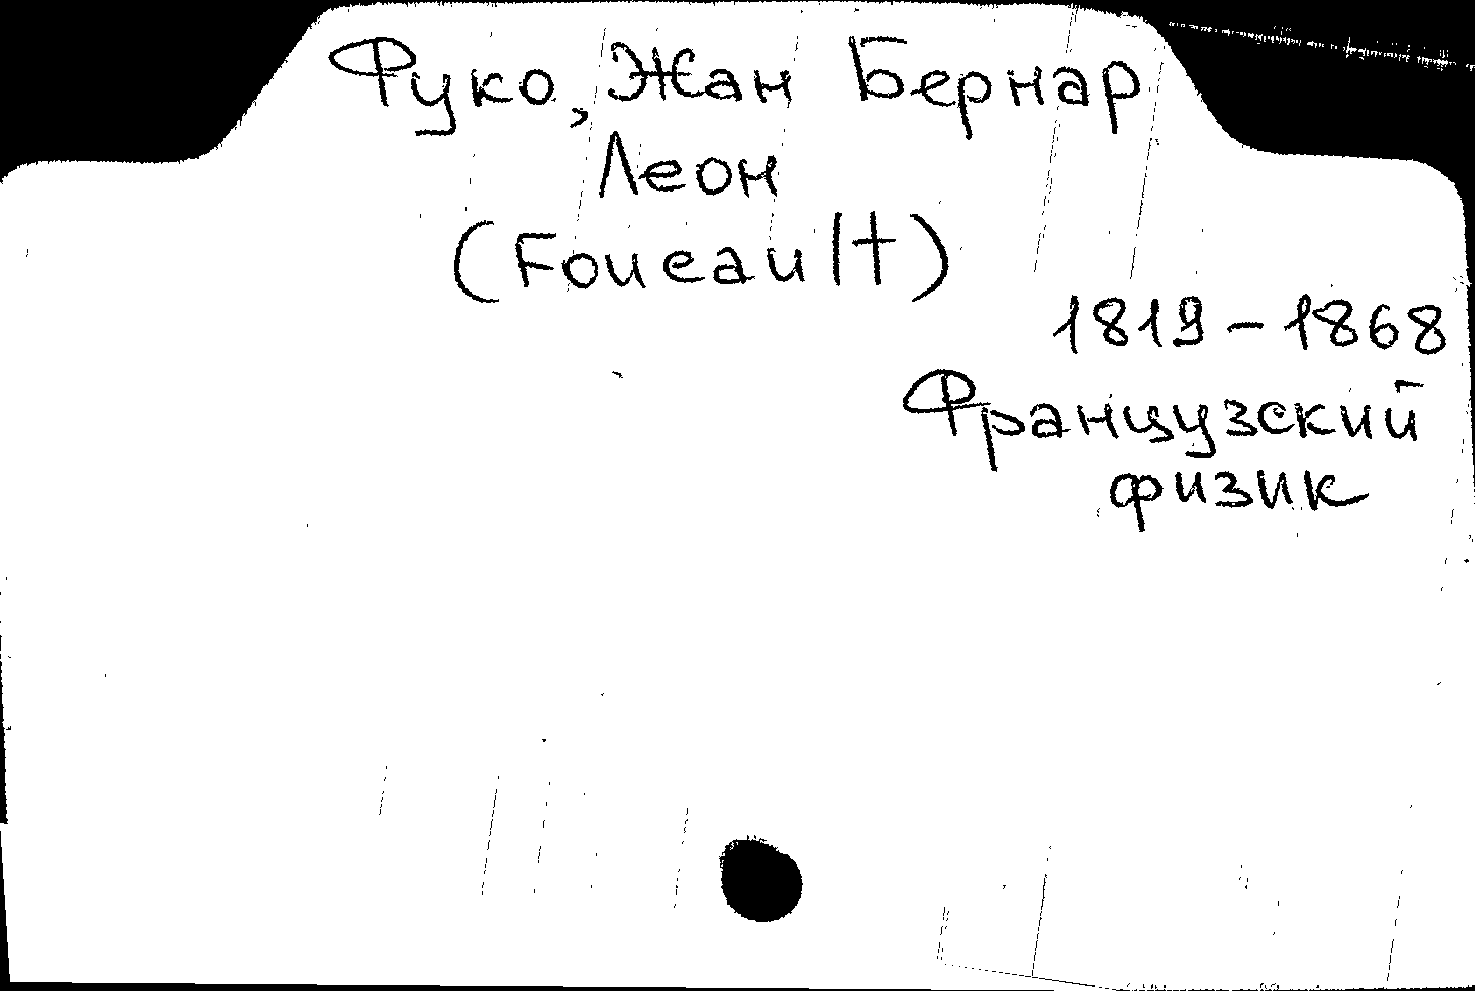 Фуко, Жан Бернар
Леон
(Foucault)
1819-1868
Французский
физик